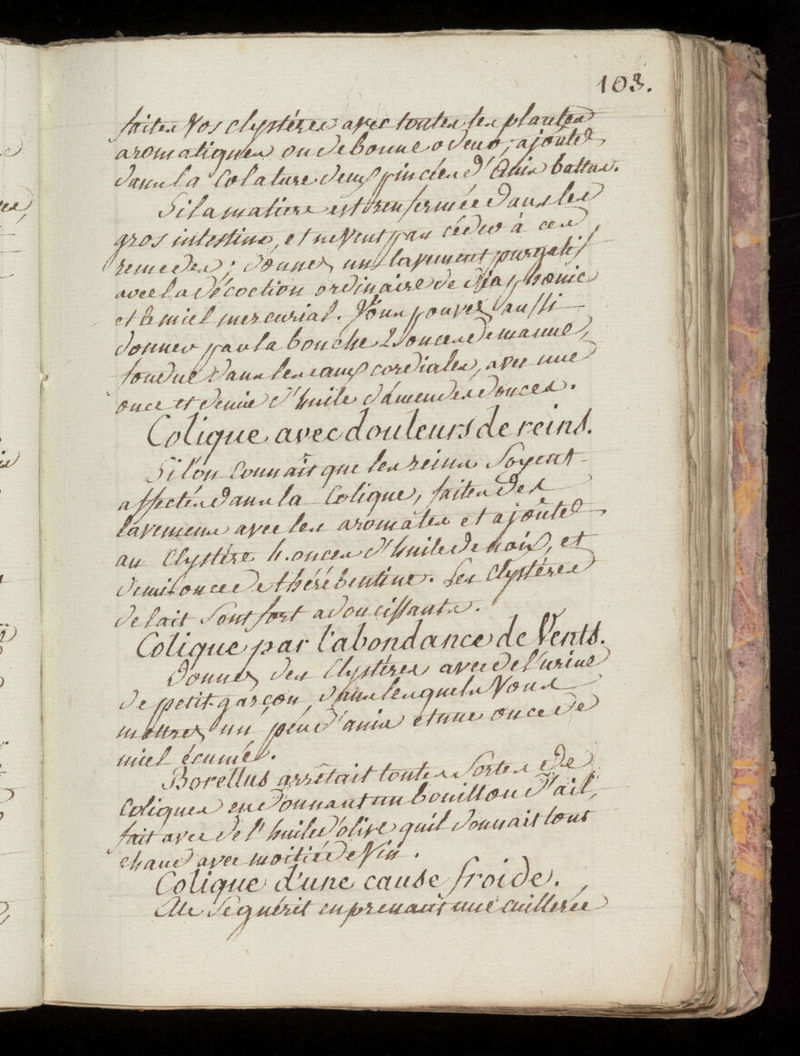 103.
faites vos clystéres avec toutes les plantes
aromatiques ou de bonne odeur; ajoutés
dans la colature deux pincées d'anis battus.
Si la matiere est renfermée dans les
gros intestins, et ne veut pas céder à ces
remedes; donnez un lavement purgatif
avec la décoction ordinaire de diaphœnic
et le miel mercurial. Vous pouvez aussi
donner par la bouche 2 onces de manne,
fondue dans les eaux cordiales, avec une
once et demie d'huile d'amendes douces.
Colique avec douleurs de reins.
Si l'on connaît que les reins soyent
affectés dans la colique, faites des
lavemens avec les aromates et ajoûtes
au clystére 4. onces d'huile de noix, et
demi once de thérébentine. Les clystéres
de lait sont fort adoucissants.
Colique par l'abondance de Vents.
Donnez des clystéres avec de l'urine
de petit garçon, dans lesquels vous
mettrez un peu d'anis et une once de
miel écumé.
Borellus arrêtait toutes sortes de
coliques en donnant un bouillon d'ail,
fait avec de l'huile d'olive qu'il donnait tout
chaud avec moitié de vin.
Colique d'une cause froide.
Elle se guérit en prenant une cuillerée